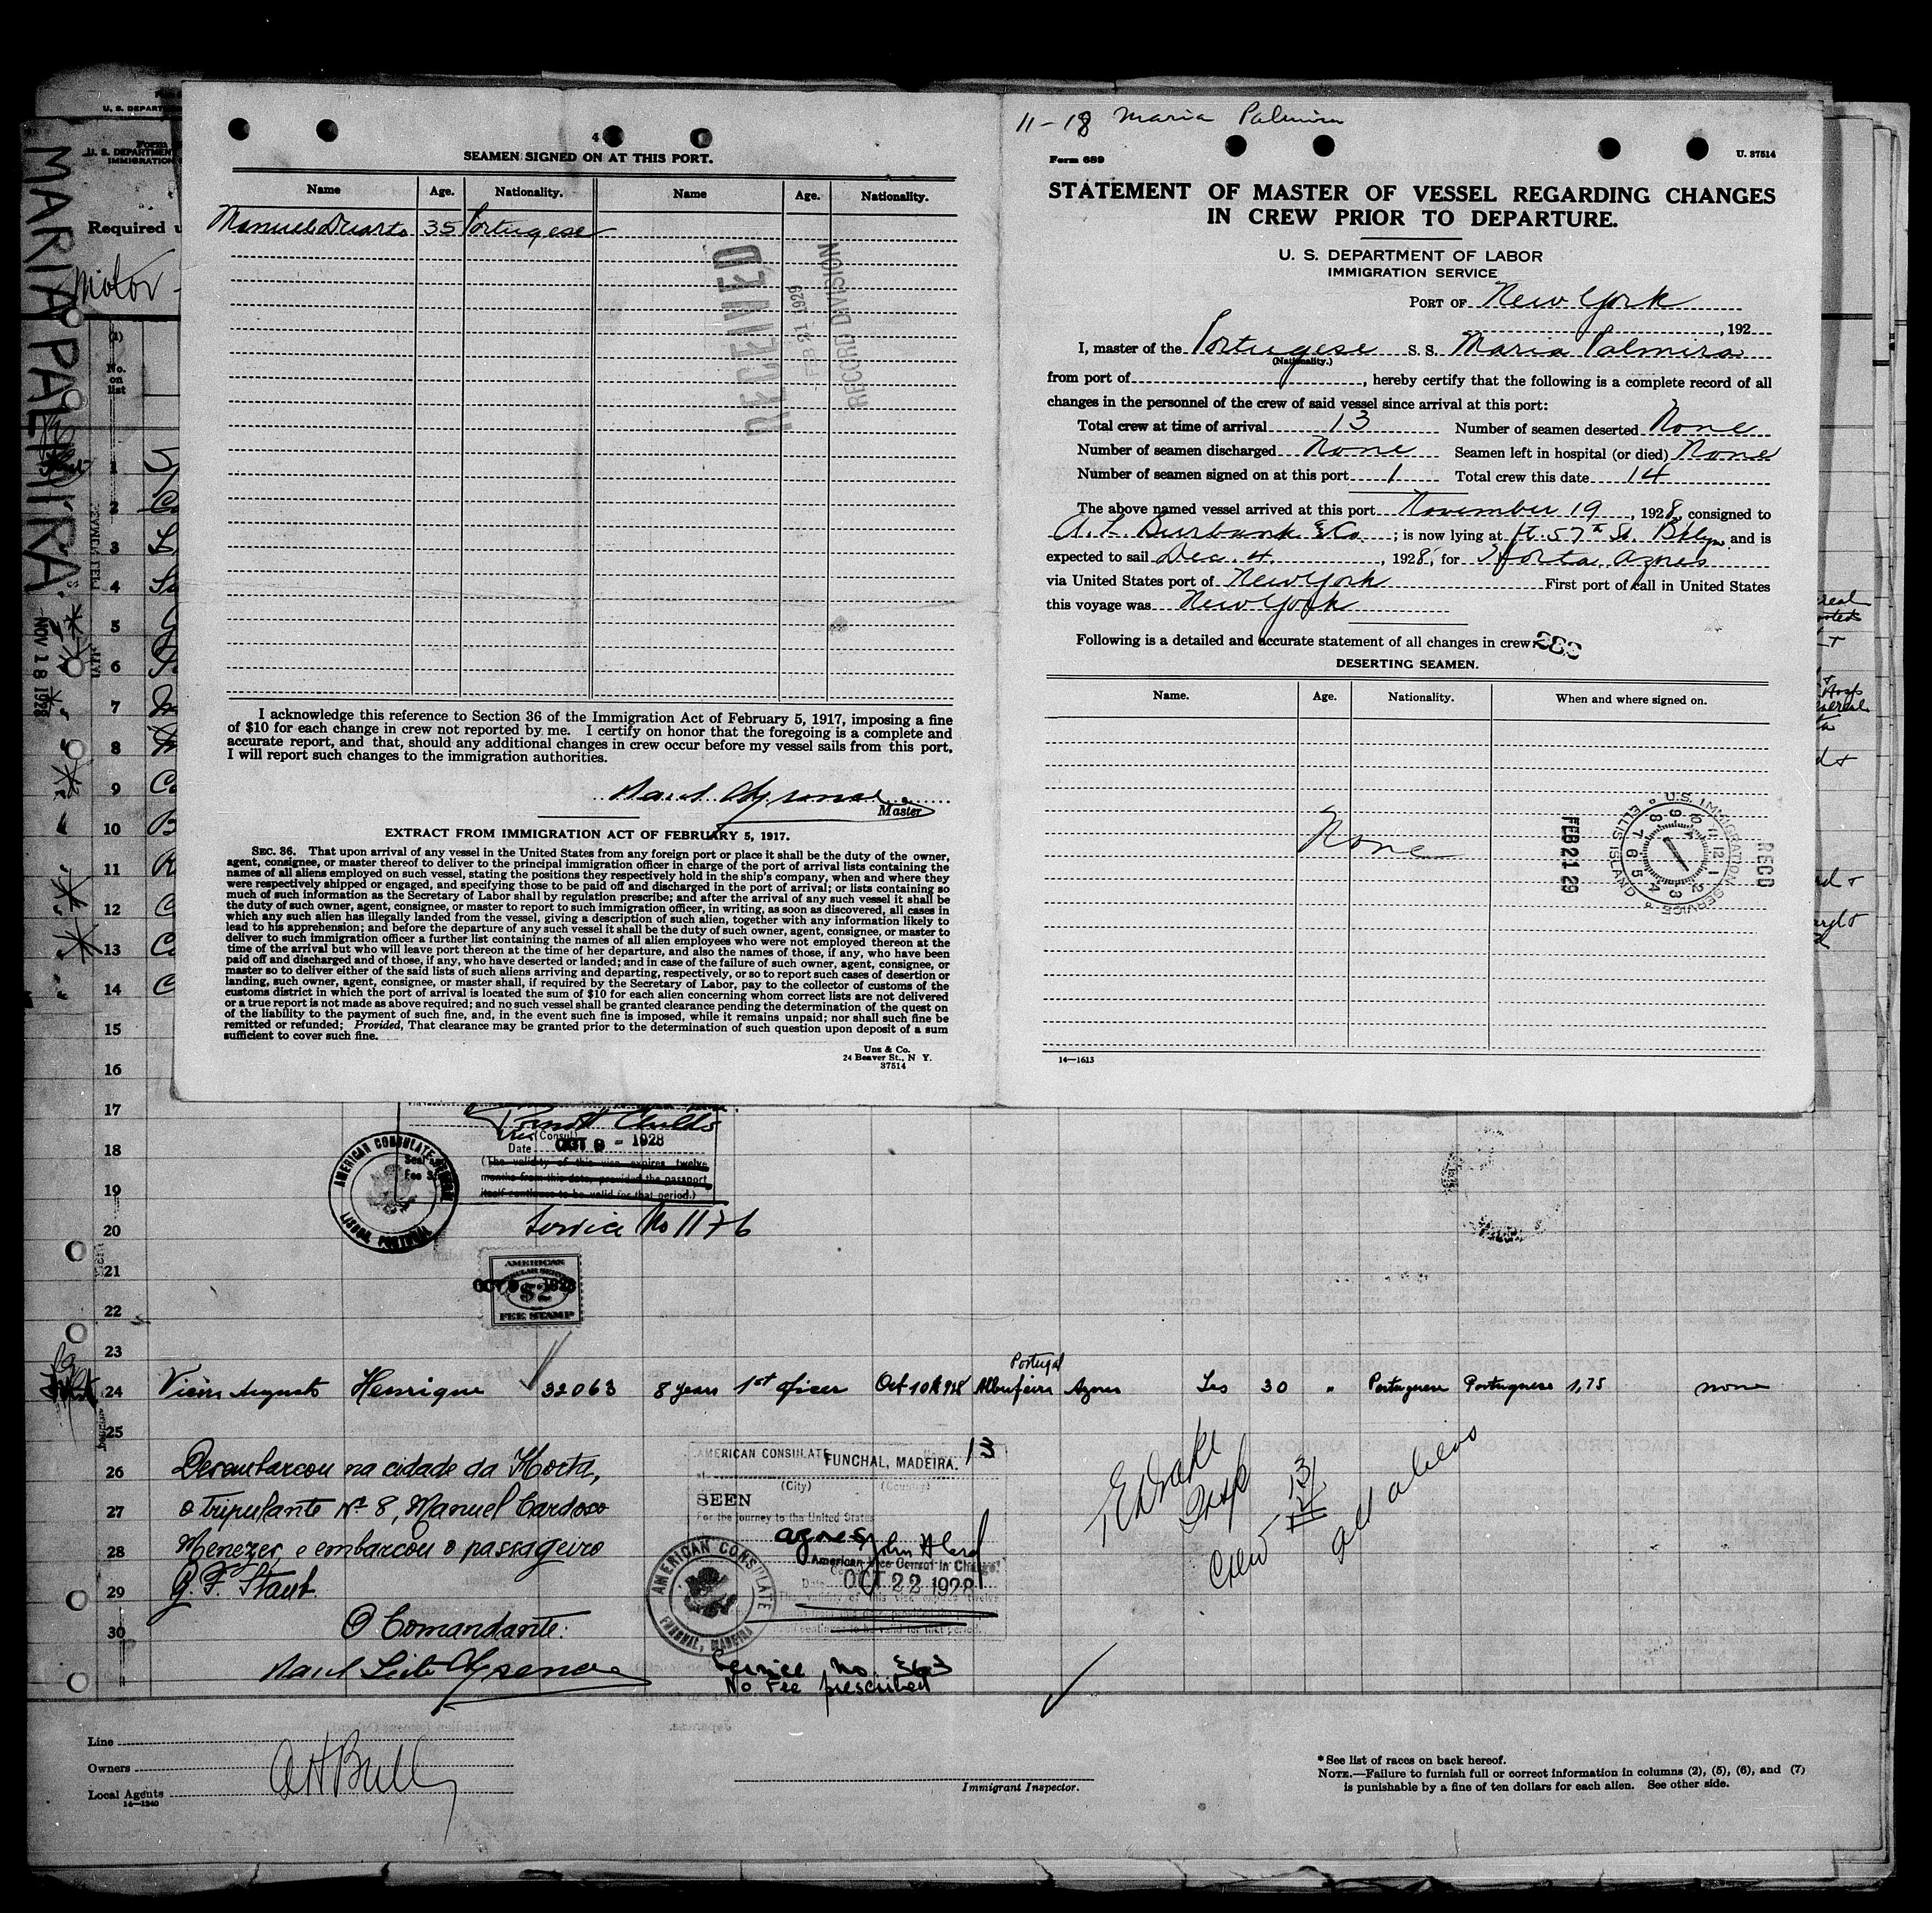 4
SEAMEN SIGNED ON AT THIS PORT.
Name Age. Nationality. Name Age. Nationality.
Manuel Duarte 35 Portugese
RECEIVED
FEB 21 1929
RECORD DIVISION
I acknowledge this reference to Section 36 of the Immigration Act of February 5, 1917, imposing a fine
of $10 for each change in crew not reported by me. I certify on honor that the foregoing is a complete and
accurate report, and that, should any additional changes in crew occur before my vessel sails from this port,
I will report such changes to the immigration authorities.
Master
EXTRACT FROM IMMIGRATION ACT OF FEBRUARY 5, 1917.
SEC. 36. That upon arrival of any vessel in the United States from any foreign port or place it shall be the duty of the owner,
agent, consignee, or master thereof to deliver to the principal immigration officer in charge of the port of arrival lists containing the
names of all aliens employed on such vessel, stating the positions they respectively hold in the ship's company, when and where they
were respectively shipped or engaged, and specifying those to be paid off and discharged in the port of arrival; or lists containing so
much of such information as the Secretary of Labor shall by regulation prescribe; and after the arrival of any such vessel it shall be
the duty of such owner, agent, consignee, or master to report to such immigration officer, in writing, as soon as discovered, all cases in
which any such alien has illegally landed from the vessel, giving a description of such alien, together with any information likely to
lead to his apprehension; and before the departure of any such vessel it shall be the duty of such owner, agent, consignee, or master to
deliver to such immigration officer a further list containing the names of all alien employees who were not employed thereon at the
time of the arrival but who will leave port thereon at the time of her departure, and also the names of those, if any, who have been
paid off and discharged and of those, if any, who have deserted or landed; and in case of the failure of such owner, agent, consignee, or
master so to deliver either of the said lists of such aliens arriving and departing, respectively, or so to report such cases of desertion or
landing, such owner, agent, consignee, or master shall, if required by the Secretary of Labor, pay to the collector of customs of the
customs district in which the port of arrival is located the sum of $10 for each alien concerning whom correct lists are not delivered
or a true report is not made as above required; and no such vessel shall be granted clearance pending the determination of the quest on
of the liability to the payment of such fine, and, in the event such fine is imposed, while it remains unpaid; nor shall such fine be
remitted or refunded; Provided, That clearance may be granted prior to the determination of such question upon deposit of a sum
sufficient to cover such fine.
Unz & Co.
24 Beaver St., N Y.
37514
11-18 Maria Palmira
Form 689
U. 37514
STATEMENT OF MASTER OF VESSEL REGARDING CHANGES
IN CREW PRIOR TO DEPARTURE.
U. S. DEPARTMENT OF LABOR
IMMIGRATION SERVICE
PORT OF New York
, 192
I, master of the Portugese S. S. Maria Palmira
(Nationality.)
from port of , hereby certify that the following is a complete record of all
changes in the personnel of the crew of said vessel since arrival at this port:
Total crew at time of arrival 13 Number of seamen deserted None
Number of seamen discharged None Seamen left in hospital (or died) None
Number of seamen signed on at this port 1 Total crew this date 14
The above named vessel arrived at this port November 19, 1928, consigned to
A. L. Burbank & Co. ; is now lying at ft. 57th St. Bklyn and is
expected to sail Dec. 4, 1928, for Horta Azores
via United States port of New York First port of call in United States
this voyage was New York
Following is a detailed and accurate statement of all changes in crew:
DESERTING SEAMEN.
Name. Age. Nationality. When and where signed on.
None
FEB 21 29
U.S. IMMIGRATION SERVICE
ELLIS ISLAND
RECD
14—1613
MARIA PALMIRA.
NOV 18 1928
U. S. DEPART
Form
U. S. DEPARTMENT
IMMIGRATION
Required u
Motor
(1)
No.
on
list
1
2
3
4
5
6
7
8
9
10
11
12
13
14
15
16
17
18
19
20
21
22
23
(Consul)
Date OCT 9 - 1928
(The validity of this visa expires twelve
months from this date, provided the passport
itself continues to be valid for that period.)
AMERICAN CONSULATE GENERAL
LISBOA, PORTUGAL
Service No 1176
AMERICAN
CONSULAR SERVICE
$2
FEE STAMP
Portugal
24 Henrique 32063 8 years 1st oficer Oct 10th 928 Albufeira Azores Yes 30 " Portuguese Portuguese 1,75 none
25
26
27
28
29
30
Desembarcou na cidade da Horta,
o tripulante Nº 8, Manuel Cardoso
Menezes, e embarcou o passageiro
G. F. Staub.
O Comandante:
AMERICAN CONSULATE 13
FUNCHAL, MADEIRA.
(City) (Country)
SEEN
For the journey to the United States
azores
American Vice Consul in Charge
Date OCT 22 1928
AMERICAN CONSULATE
FUNCHAL, MADEIRA
Service no. 363
No Fee prescribed
Insp
Crew 13
all aliens
Line
Owners
Local Agents
14—1240
A H Bull
Immigrant Inspector.
* See list of races on back hereof.
NOTE.—Failure to furnish full or correct information in columns (2), (5), (6), and (7)
is punishable by a fine of ten dollars for each alien. See other side.